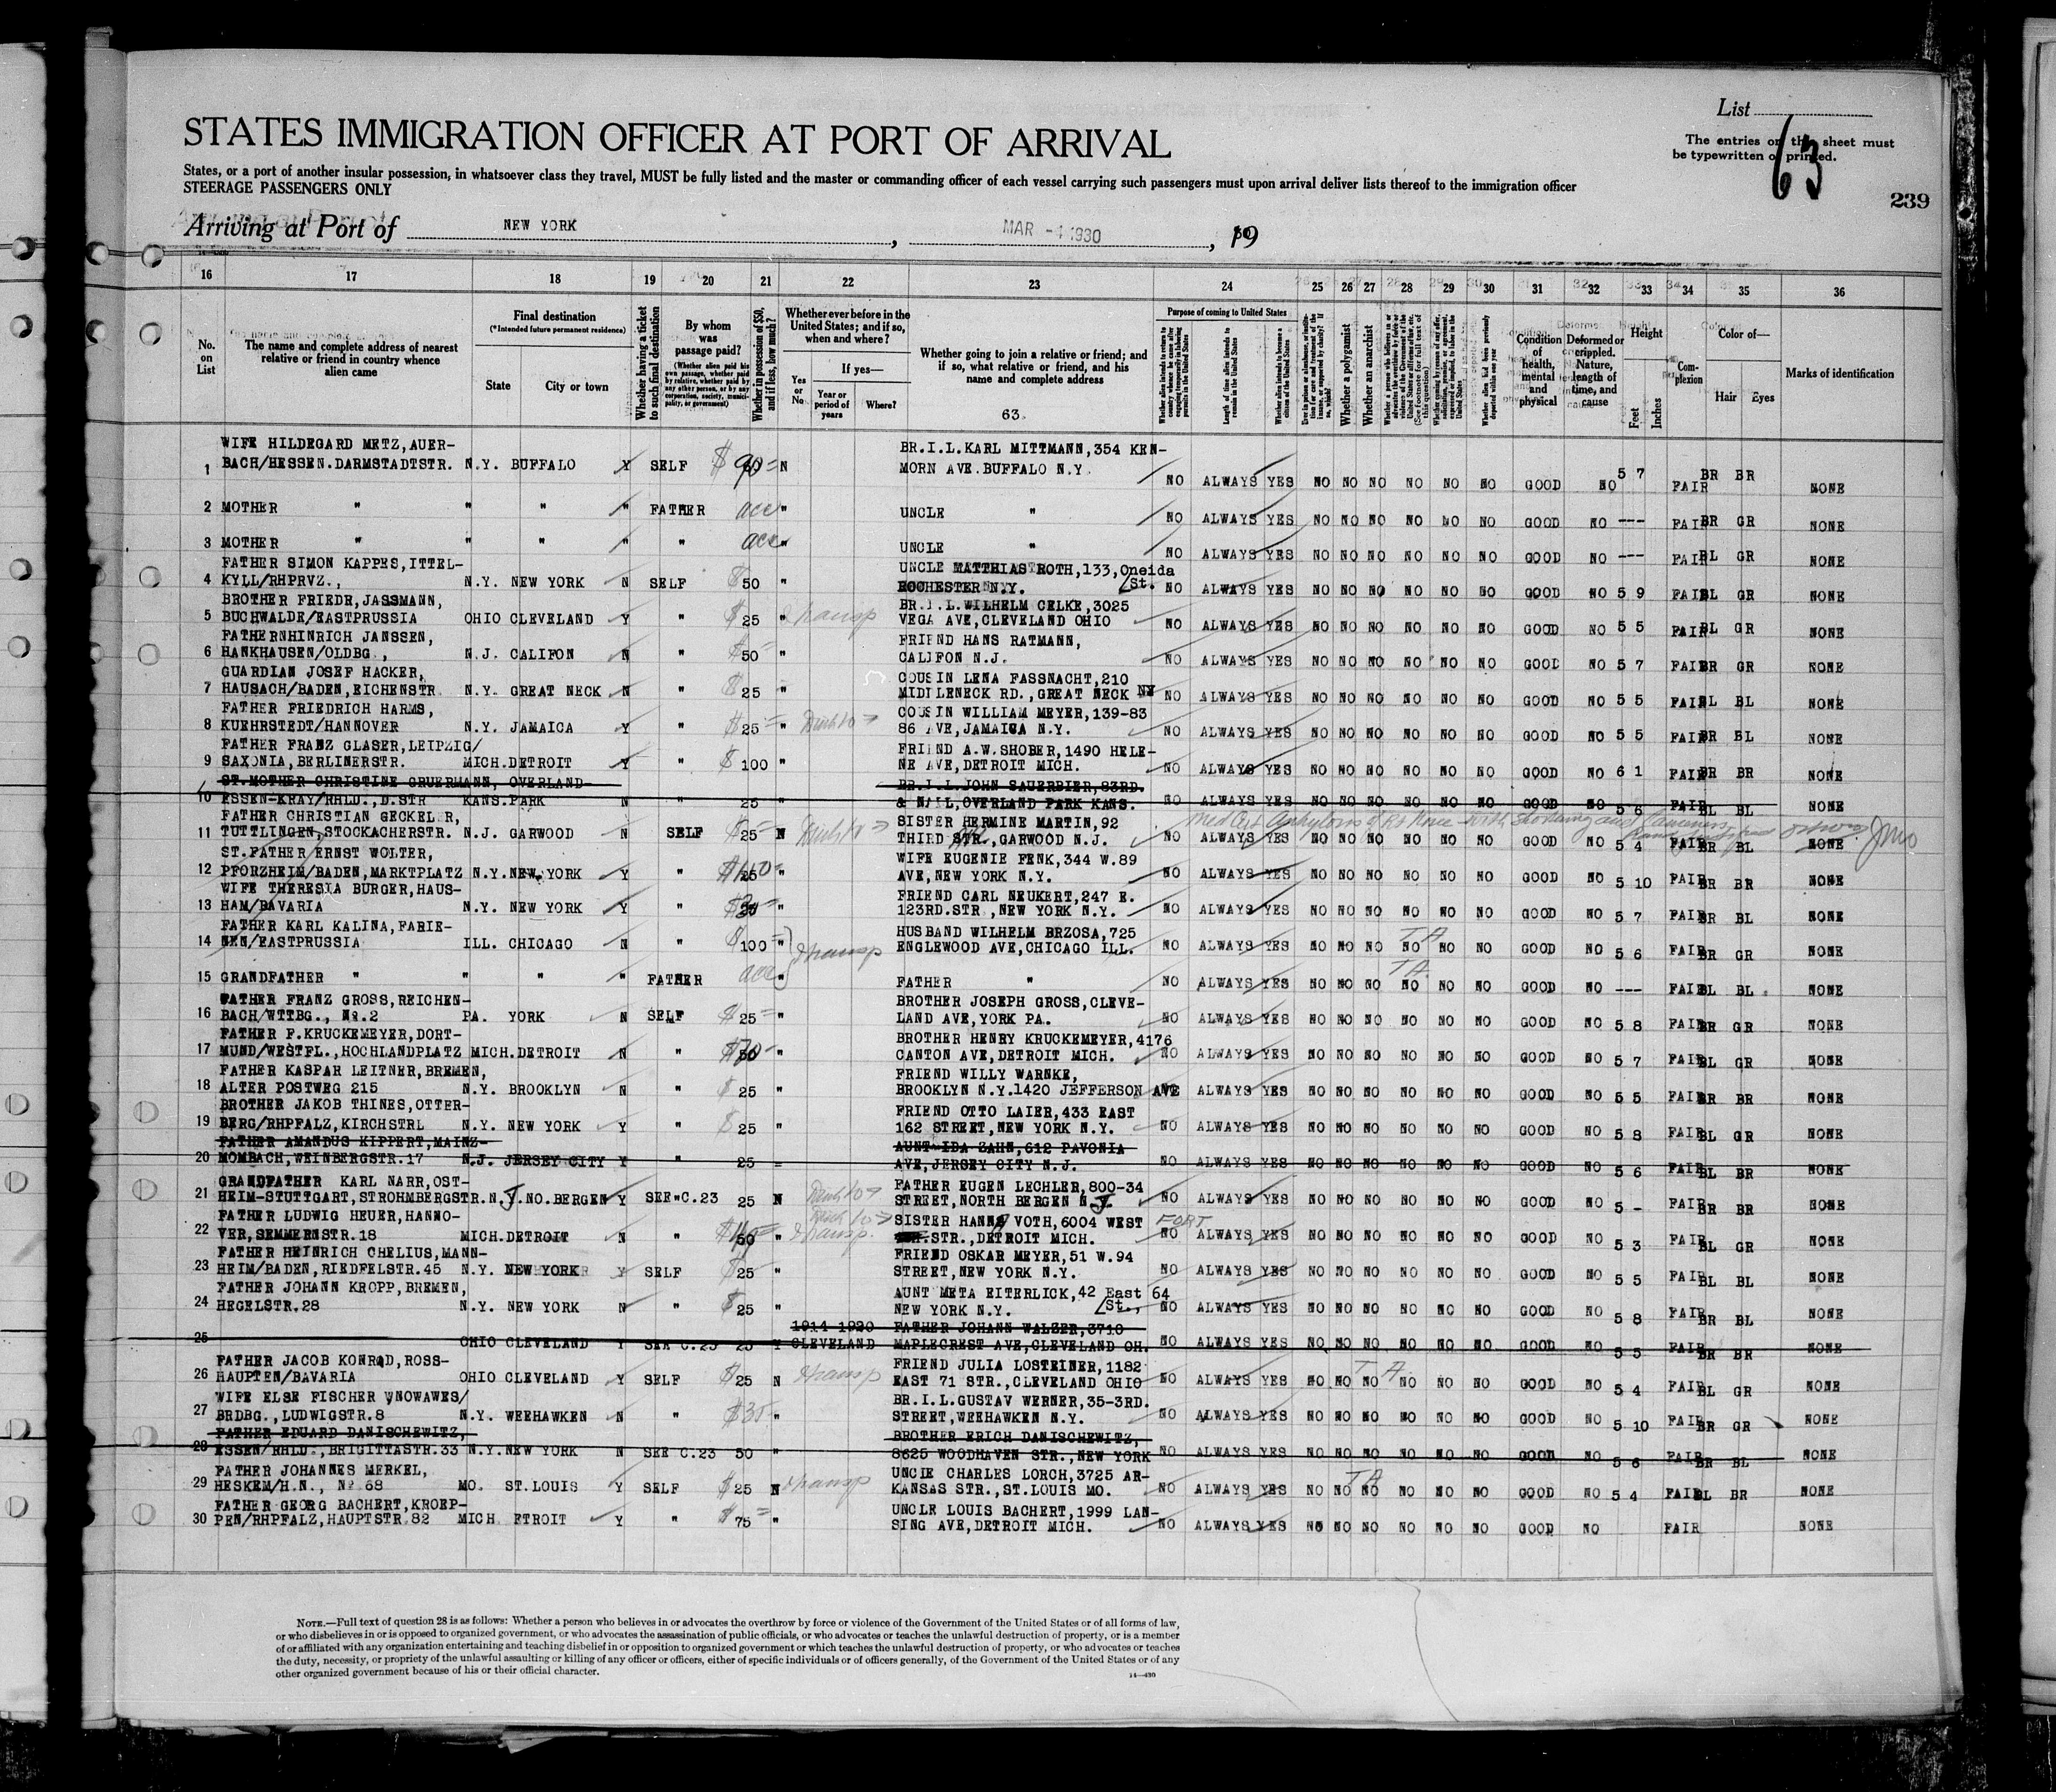 List
63
The entries on this sheet must
be typewritten or printed.
239
STATES IMMIGRATION OFFICER AT PORT OF ARRIVAL
States, or a port of another insular possession, in whatsoever class they travel, MUST be fully listed and the master or commanding officer of each vessel carrying such passengers must upon arrival deliver lists thereof to the immigration officer
STEERAGE PASSENGERS ONLY
Arriving at Port of NEW YORK, MAR -4 1930, 19
16 17 18 19 20 21 22 23 24 25 26 27 28 29 30 31 32 33 34 35 36
No. on List
The name and complete address of nearest relative or friend in country whence alien came
Final destination
(*Intended future permanent residence)
State
City or town
Whether having a ticket to such final destination
By whom was passage paid?
(Whether alien paid his own passage, whether paid by relative, whether paid by any other person, or by any corporation, society, municipality, or government)
Whether in possession of $50, and if less, how much?
Whether ever before in the United States; and if so, when and where?
Yes or No
If yes—
Year or period of years
Where?
Whether going to join a relative or friend; and if so, what relative or friend, and his name and complete address
63.
Purpose of coming to United States
Length of time alien intends to remain in the United States
Whether alien intends to become a citizen of the United States
Whether a polygamist
Whether an anarchist
Condition of health, mental and physical
Deformed or crippled. Nature, length of time, and cause
Height
Feet
Inches
Complexion
Color of—
Hair
Eyes
Marks of identification
WIFE HILDEGARD METZ,AUER- BR.I.L.KARL MITTMANN,354 KEN-
1 BACH/HESSEN.DARMSTADTSTR. N.Y. BUFFALO Y SELF $90 N MORN AVE.BUFFALO N.Y. NO ALWAYS YES NO NO NO NO NO NO GOOD NO 5 7 FAIR BR BR NONE
2 MOTHER " " " " FATHER acc " UNCLE " NO ALWAYS YES NO NO NO NO NO NO GOOD NO --- FAIR BR GR NONE
3 MOTHER " " " " " acc " UNCLE " NO ALWAYS YES NO NO NO NO NO NO GOOD NO --- FAIR BL GR NONE
FATHER SIMON KAPPES,ITTEL- UNCLE MATTHIAS ROTH,133,Oneida
4 KYLL/RHPRVZ., N.Y. NEW YORK N SELF $50 " ROCHESTER N.Y. /St. NO ALWAYS YES NO NO NO NO NO NO GOOD NO 5 9 FAIR BL GR NONE
BROTHER FRIEDR,JASSMANN, BR.I.L.WILHELM CELKE,3025
5 BUCHWALDE/EASTPRUSSIA OHIO CLEVELAND Y " $25 " transp VEGA AVE,CLEVELAND OHIO NO ALWAYS YES NO NO NO NO NO NO GOOD NO 5 5 FAIR BL GR NONE
FATHERNHINRICH JANSSEN, FRIEND HANS RATMANN,
6 HANKHAUSEN/OLDBG., N.J. CALIFON N " $50 " CALIFON N.J. NO ALWAYS YES NO NO NO NO NO NO GOOD NO 5 7 FAIR BR GR NONE
GUARDIAN JOSEF HACKER, COUSIN LENA FASSNACHT,210
7 HAUSACH/BADEN,EICHENSTR N.Y. GREAT NECK N " $25 " MIDDLENECK RD.,GREAT NECK NY NO ALWAYS YES NO NO NO NO NO NO GOOD NO 5 5 FAIR BL BL NONE
FATHER FRIEDRICH HARMS, COUSIN WILLIAM MEYER,139-83
8 KUEHRSTEDT/HANNOVER N.Y. JAMAICA Y " $25 " 86 AVE,JAMAICA N.Y. NO ALWAYS YES NO NO NO NO NO NO GOOD NO 5 5 FAIR BR BL NONE
FATHER FRANZ GLASER,LEIPZIG/ FRIEND A.W.SHOBER,1490 HELE-
9 SAXONIA,BERLINERSTR. MICH.DETROIT Y " $100 " NE AVE,DETROIT MICH. NO ALWAYS YES NO NO NO NO NO NO GOOD NO 6 1 FAIR BR BR NONE
ST.MOTHER CHRISTINE GRUERMANN, OVERLAND BR.I.L.JOHN SAUERBIER,83RD.
10 ESSEN-KRAY/RHLD.,D.STR KANS.PARK N " 25 " & NALL,OVERLAND PARK KANS. NO ALWAYS YES NO NO NO NO NO NO GOOD NO 5 6 FAIR BL BL NONE
FATHER CHRISTIAN GECKELER, SISTER HERMINE MARTIN,92 Med Cert Ankylosis of Rt Knee with shortening and lameness
11 TUTTLINGEN,STOCKACHERSTR. N.J. GARWOOD N SELF $25 N THIRD STR.,GARWOOD N.J. NO ALWAYS YES NO NO NO NO NO NO GOOD NO 5 4 FAIR BR BL NONE
ST.FATHER ERNST WOLTER, WIFE EUGENIE FENK,344 W.89
12 PFORZHEIM/BADEN,MARKTPLATZ N.Y.NEW YORK Y " 25 " AVE,NEW YORK N.Y. NO ALWAYS YES NO NO NO NO NO NO GOOD NO 5 10 FAIR BR BR NONE
WIFE THERESIA BURGER,HAUS- FRIEND CARL NEUKERT,247 E.
13 HAM/BAVARIA N.Y. NEW YORK Y " " 123RD.STR.,NEW YORK N.Y. NO ALWAYS YES NO NO NO NO NO NO GOOD NO 5 7 FAIR BR BL NONE
FATHER KARL KALINA,FARIE- HUSBAND WILHELM BRZOSA,725
14 NEN/EASTPRUSSIA ILL. CHICAGO N " $100 " transp ENGLEWOOD AVE,CHICAGO ILL. NO ALWAYS YES NO NO NO NO NO NO GOOD NO 5 6 FAIR BR GR NONE
15 GRANDFATHER " " " " FATHER acc " FATHER " NO ALWAYS YES NO NO NO NO NO NO GOOD NO --- FAIR BL BL NONE
FATHER FRANZ GROSS,REICHEN- BROTHER JOSEPH GROSS,CLEVE-
16 BACH/WTTBG., No.2 PA. YORK N SELF $25 " LAND AVE,YORK PA. NO ALWAYS YES NO NO NO NO NO NO GOOD NO 5 8 FAIR BR GR NONE
FATHER F.KRUCKEMEYER,DORT- BROTHER HENRY KRUCKEMEYER,4176
17 MUND/WESTFL.,HOCHLANDPLATZ MICH.DETROIT N " $70 " CANTON AVE,DETROIT MICH. NO ALWAYS YES NO NO NO NO NO NO GOOD NO 5 7 FAIR BL GR NONE
FATHER KASPAR LEITNER,BREMEN, FRIEND WILLY WARNKE,
18 ALTER POSTWEG 215 N.Y. BROOKLYN N " $25 " BROOKLYN N.Y.1420 JEFFERSON AVE ALWAYS YES NO NO NO NO NO NO GOOD NO 5 5 FAIR BR BR NONE
BROTHER JAKOB THINES,OTTER- FRIEND OTTO LAIER,433 EAST
19 BERG/RHPFALZ,KIRCHSTRL N.Y. NEW YORK Y " $25 " 162 STREET,NEW YORK N.Y. NO ALWAYS YES NO NO NO NO NO NO GOOD NO 5 8 FAIR BL GR NONE
FATHER AMANDUS KIPPERT,MAINZ- AUNT IDA ZAHN,612 PAVONIA
20 MOMBACH,WEINBERGSTR.17 N.J. JERSEY CITY Y " 25 AVE,JERSEY CITY N.J. NO ALWAYS YES NO NO NO NO NO NO GOOD NO 5 6 FAIR BL BR NONE
GRANDFATHER KARL NARR,OST- FATHER EUGEN LECHLER,800-34
21 HEIM-STUTTGART,STROHMBERGSTR.N.J.NO.BERGEN Y SEE C.23 25 N STREET,NORTH BERGEN N.J. NO ALWAYS YES NO NO NO NO NO NO GOOD NO 5 - FAIR BR BR NONE
FATHER LUDWIG HEUER,HANNO- SISTER HANNA VOTH,6004 WEST FORT
22 VER,SEMMERNSTR.18 MICH.DETROIT N " 50 " transp. STR.,DETROIT MICH. NO ALWAYS YES NO NO NO NO NO NO GOOD NO 5 3 FAIR BL GR NONE
FATHER HEINRICH CHELIUS,MANN- FRIEND OSKAR MEYER,51 W.94
23 HEIM/BADEN,RIEDFELSTR.45 N.Y. NEW YORK Y SELF $25 " STREET,NEW YORK N.Y. NO ALWAYS YES NO NO NO NO NO NO GOOD NO 5 5 FAIR BL BL NONE
FATHER JOHANN KROPP,BREMEN, AUNT META EITERLICK,42 East 64
24 HEGELSTR.28 N.Y. NEW YORK N " $25 " NEW YORK N.Y. /St., NO ALWAYS YES NO NO NO NO NO NO GOOD NO 5 8 FAIR BR BL NONE
1914-1920 FATHER JOHANN WALZER,3710
25 OHIO CLEVELAND Y SEE C.23 25 Y CLEVELAND MAPLECREST AVE,CLEVELAND OH. NO ALWAYS YES NO NO NO NO NO NO GOOD NO 5 5 FAIR BR BR NONE
FATHER JACOB KONRAD,ROSS- FRIEND JULIA LOSTEINER,1182
26 HAUPTEN/BAVARIA OHIO CLEVELAND Y SELF $25 N transp EAST 71 STR.,CLEVELAND OHIO NO ALWAYS YES NO NO NO NO NO NO GOOD NO 5 4 FAIR BL GR NONE
WIFE ELSE FISCHER ,NOWAWES/ BR.I.L.GUSTAV WERNER,35-3RD.
27 BRDBG.,LUDWIGSTR.8 N.Y. WEEHAWKEN N " $35 " STREET,WEEHAWKEN N.Y. NO ALWAYS YES NO NO NO NO NO NO GOOD NO 5 10 FAIR BR GR NONE
FATHER EDUARD DANISCHEWITZ, BROTHER ERICH DANISCHEWITZ,
28 ESSEN/RHLD.,BRIGITTASTR.33 N.Y.NEW YORK N SEE C.23 50 " 8625 WOODHAVEN STR.,NEW YORK NO ALWAYS YES NO NO NO NO NO NO GOOD NO 5 6 FAIR BR BL NONE
FATHER JOHANNES MERKEL, UNCLE CHARLES LORCH,3725 AR-
29 HESKEM/H.N., No.68 MO. ST.LOUIS Y SELF $25 N transp KANSAS STR.,ST.LOUIS MO. NO ALWAYS YES NO NO NO NO NO NO GOOD NO 5 4 FAIR BL BR NONE
FATHER GEORG BACHERT,KROEP- UNCLE LOUIS BACHERT,1999 LAN-
30 PEN/RHPFALZ,HAUPTSTR.82 MICH ETROIT Y " $75 " SING AVE,DETROIT MICH. NO ALWAYS YES NO NO NO NO NO NO GOOD NO FAIR NONE
NOTE.—Full text of question 28 is as follows: Whether a person who believes in or advocates the overthrow by force or violence of the Government of the United States or of all forms of law,
or who disbelieves in or is opposed to organized government, or who advocates the assassination of public officials, or who advocates or teaches the unlawful destruction of property, or is a member
of or affiliated with any organization entertaining and teaching disbelief in or opposition to organized government or which teaches the unlawful destruction of property, or who advocates or teaches
the duty, necessity, or propriety of the unlawful assaulting or killing of any officer or officers, either of specific individuals or of officers generally, of the Government of the United States or of any
other organized government because of his or their official character.
14—430